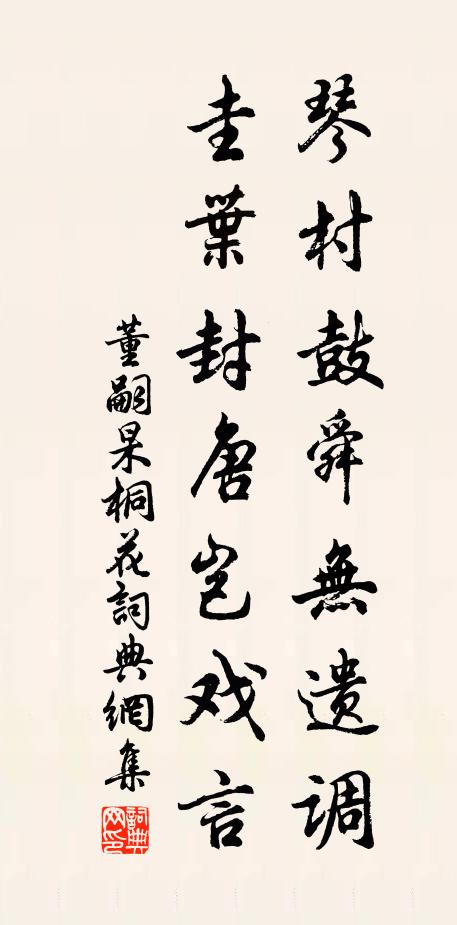 琴村鼓舜無遺调
圭葉封唐岂戏言
董嗣杲桐花詞典網集
詞典網印